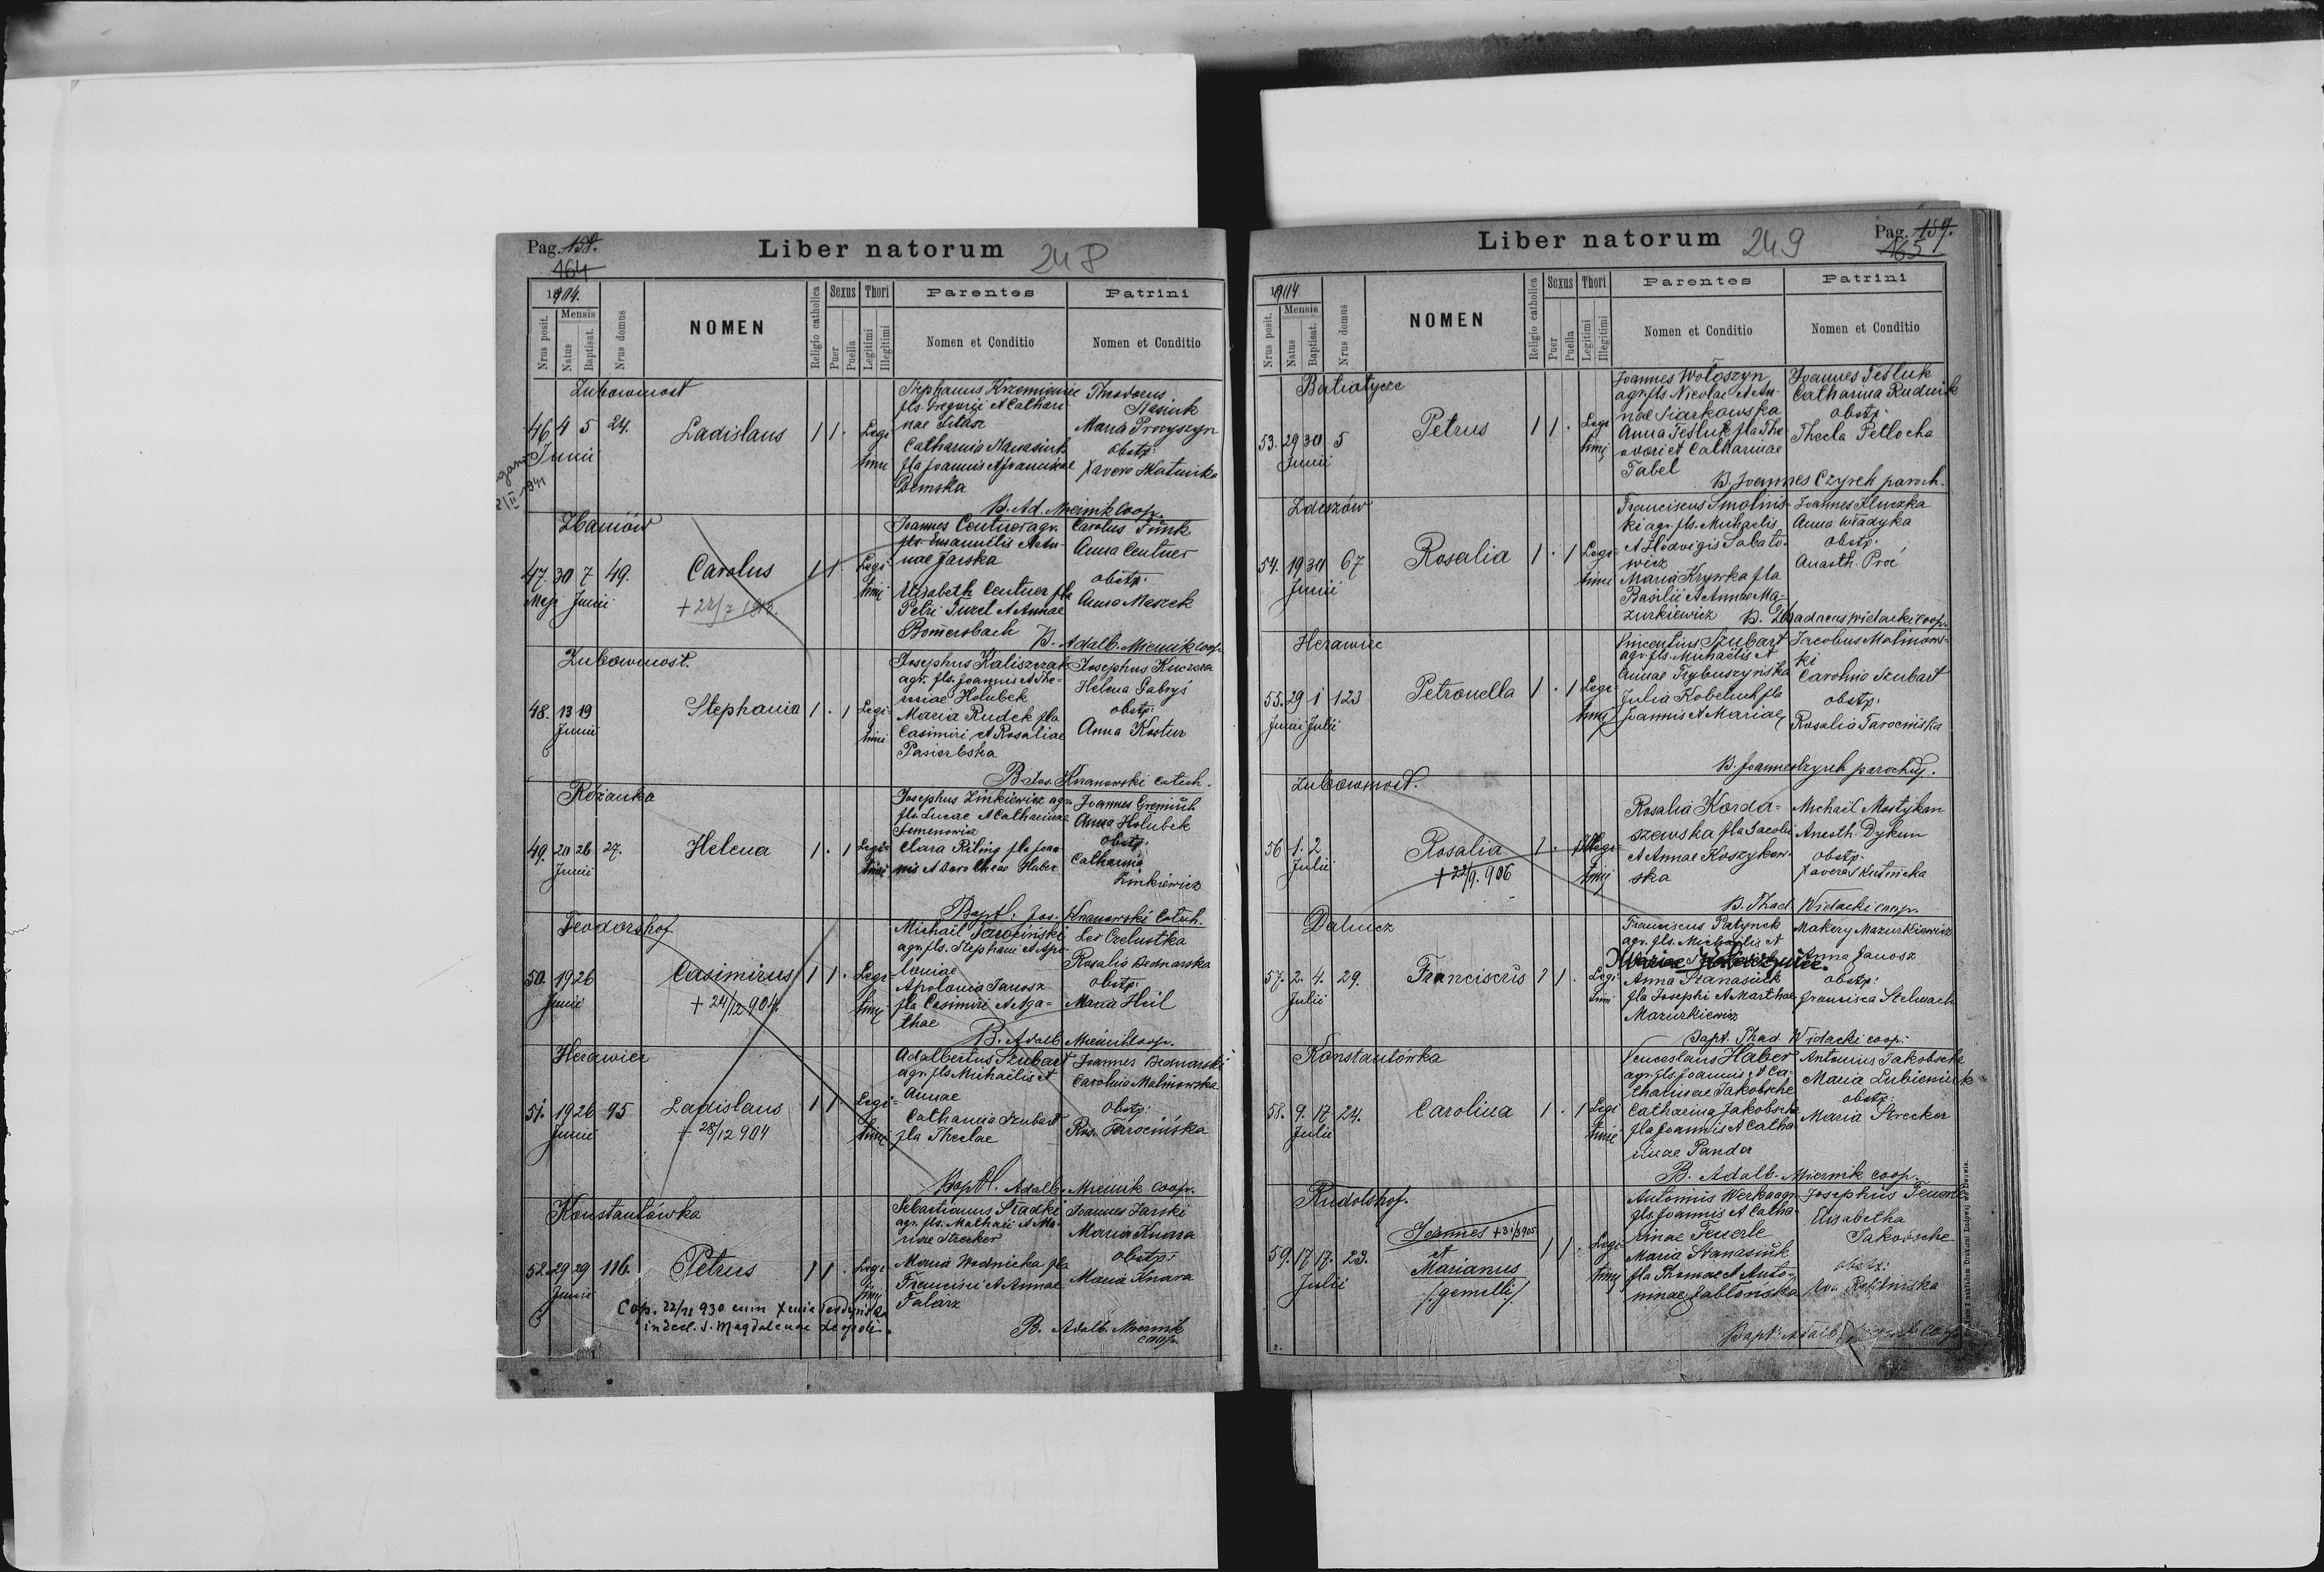 Pag. 158.
164
Liber natorum
248
1904.
Nrus posit.
Mensis
Natus
Baptisat.
Nrus domus
NOMEN
Religio catholica
Sexus
Puer
Puella
Thori
Legitimi
Illegitimi
Parentes
Nomen et Conditio
Patrini
Nomen et Conditio
Zubowmost
46 4 5 24. Ladislaus 1 1 . Legi
timi
Junii
Stephanus Krzemieniec
fls. Gregorii et Cathari-
nae
Catharina Stanasiuk
fla Joannis et Franciscae
Demska
Theodorus
Stasiuk
Maria Procyszyn
obstp:
Xavera Skutnicka
B. Ad. Miernik Coop.
Zbaniów
47. 30 7 49. Carolus 1 1 . Legi-
timi
Maji Junii
+ 22/7 1912.
Joannes Centner agr.
fls. Emanuelis et An-
nae Jarska
Elisabeth Centner fla
Petri Turel et Annae
Bomersbach
Carolus
Anna Centner
obstp:
Anna Maszek
B. Adalb. Miernik coop.
Zubowmost.
48. 13 19 Stephania 1 . 1 Legi-
timi
Junii
Josephus Kaliszczak
agr. fls. Joannis et The-
resiae Holubek
Maria Rudek fla
Casimiri et Rosaliae
Pasierbska
Josephus Kuczera
Helena Gabryś
obstp:
Anna Kostur
B. Jos. Knanowski Catech.
Rożanka
49. 20 26 27. Helena 1 . 1 Legi-
timi
Junii
Josephus Zinkiewicz agr.
fls. Lucae et Catharinae
Semenowicz
Clara Riling fla Joan-
nis et Dorotheae Haber
Joannes
Anna Holubek
obstp:
Catharina
Zinkiewicz
Bapt: Jos. Knanowski Catech.
Teodorshof
50. 19 26 Casimirus 1 1 . Legi-
timi
Junii
+ 24/12 904.
Michaël Tarociński
agr. fls. Stephani et Apo-
loniae
Apolonia Janosz
fla Casimiri et Aga-
thae
Leo Czelustka
Rosalia Bednarska
obstp:
Maria Heil
B. Adalb. Miernik coop.
Herawiec
51. 19 26 95 Ladislaus 1 1 . Legi-
timi
Junii
+ 28/12 904
Adalbertus Szubart
agr. fls Michaëlis et
Annae
Catharina Szubart
fla Theclae
Joannes Bednarski
Carolina Malinowska
Obstp:
Ros. Tarocińska
Bapt. Adalb. Miernik coop.
Konstantówka
52. 29 29 116. Petrus 1 1 . Legi-
timi
Junii
Sebastianus Sładki
agr. fls. Mathaei et Ma-
riae Strecker
Maria Wodnicka fla
Francisci et Annae
Falarz
Joannes Jarski
Maria Knara
obstp:
Maria Knara
Cop. 22/11 930 cum Xenia
in eccl. S. Magdalenae Leopoli.
B. Adalb. Miernik
coop.
Liber natorum
249
Pag. 159.
165
1904
Nrus posit.
Mensis
Natus
Baptisat.
Nrus domus
NOMEN
Religio catholica
Sexus
Puer
Puella
Thori
Legitimi
Illegitimi
Parentes
Nomen et Conditio
Patrini
Nomen et Conditio
Batiatycze
53. 29 30 5 Petrus 1 1 . Legi
timi
Junii
Joannes Wołoszyn
agr. fls Nicolai et An-
nae Siarkowska
Anna Tesluk fla The-
odori et Catharinae
Tabel
Joannes Tesluk
Catharina Rudnik
obstp:
Thecla Petlocha
B. Joannes Czyrek paroch.
Zdeszów
54. 19 30 67 Rosalia 1 . 1 Legi-
timi
Junii
Franciscus Smolins-
ki agr. fls. Michaelis
et Hedvigis Sabato-
wicz
Maria Krywka fla
Basilii et Annae Ma-
zurkiewicz
Joannes Kluczka
Anna Władyka
obstp:
Anasth. Proć
B. Thadaeus Widacki coop.
Herawiec
55. 29 1 123 Petronella 1 . 1 Legi-
timi
Junii Julii
Vincentius Szubart
agr. fls. Michaëlis et
Annae Trybuszyńska
Julia Kobeluch fla
Joannis et Mariae
Jacobus Malinows-
ki
Carolina Szubart
obstp:
Rosalia Tarocińska
B. Joannes Czyrek parochus.
Zubowmost.
56 1. 2 Rosalia 1 . 1 Illegi-
timi
Julii
+ 22/9. 906
Rosalia Korda-
szewska fla Jacobi
et Annae Koszykow-
ska
Michaël Mostykan
Anasth. Dykun
obstp:
Xavera Skutnicka
B. Thad. Widacki coop.
Dalnicz
57. 2. 4. 29. Franciscus 1 1 . Legi-
timi
Julii
Franciscus Patynek
agr. fls. Michaëlis et
Mariae
Anna Stanasiuk
fla Josephi et Marthae
Mazurkiewicz
Makery Mazurkiewicz
Anna Janosz
obstp:
Francisca Stelmach
Bapt. Thad. Widacki coop:
Konstantówka
58. 9. 17 24. Carolina 1 . 1 Legi
timi
Julii
Venceslaus Haber
agr. fls. Joannis et Ca-
tharinae Jakobsche
Catharina Jakobsche
fla Joannis et Catha-
rinae Panda
Antonius Jakobsche
Maria Lubieniuk
obstp:
Maria Strecker
B. Adalb. Miernik coop.
Rudolshof.
59. 17 17. 23. Joannes + 31/3 905
et
Marianus
/gemelli/
1 1 . Legi-
timi
Julii
Antonius Werka agr.
fls. Joannis et Catha-
rinae Feuerle
Maria Stanasiuk
fla Thomae et Anto-
ninae Jabłońska
Josephus Feuerle
Elisabetha
Jakobsche
obstp:
Bapt: Adalb. Miernik coop.